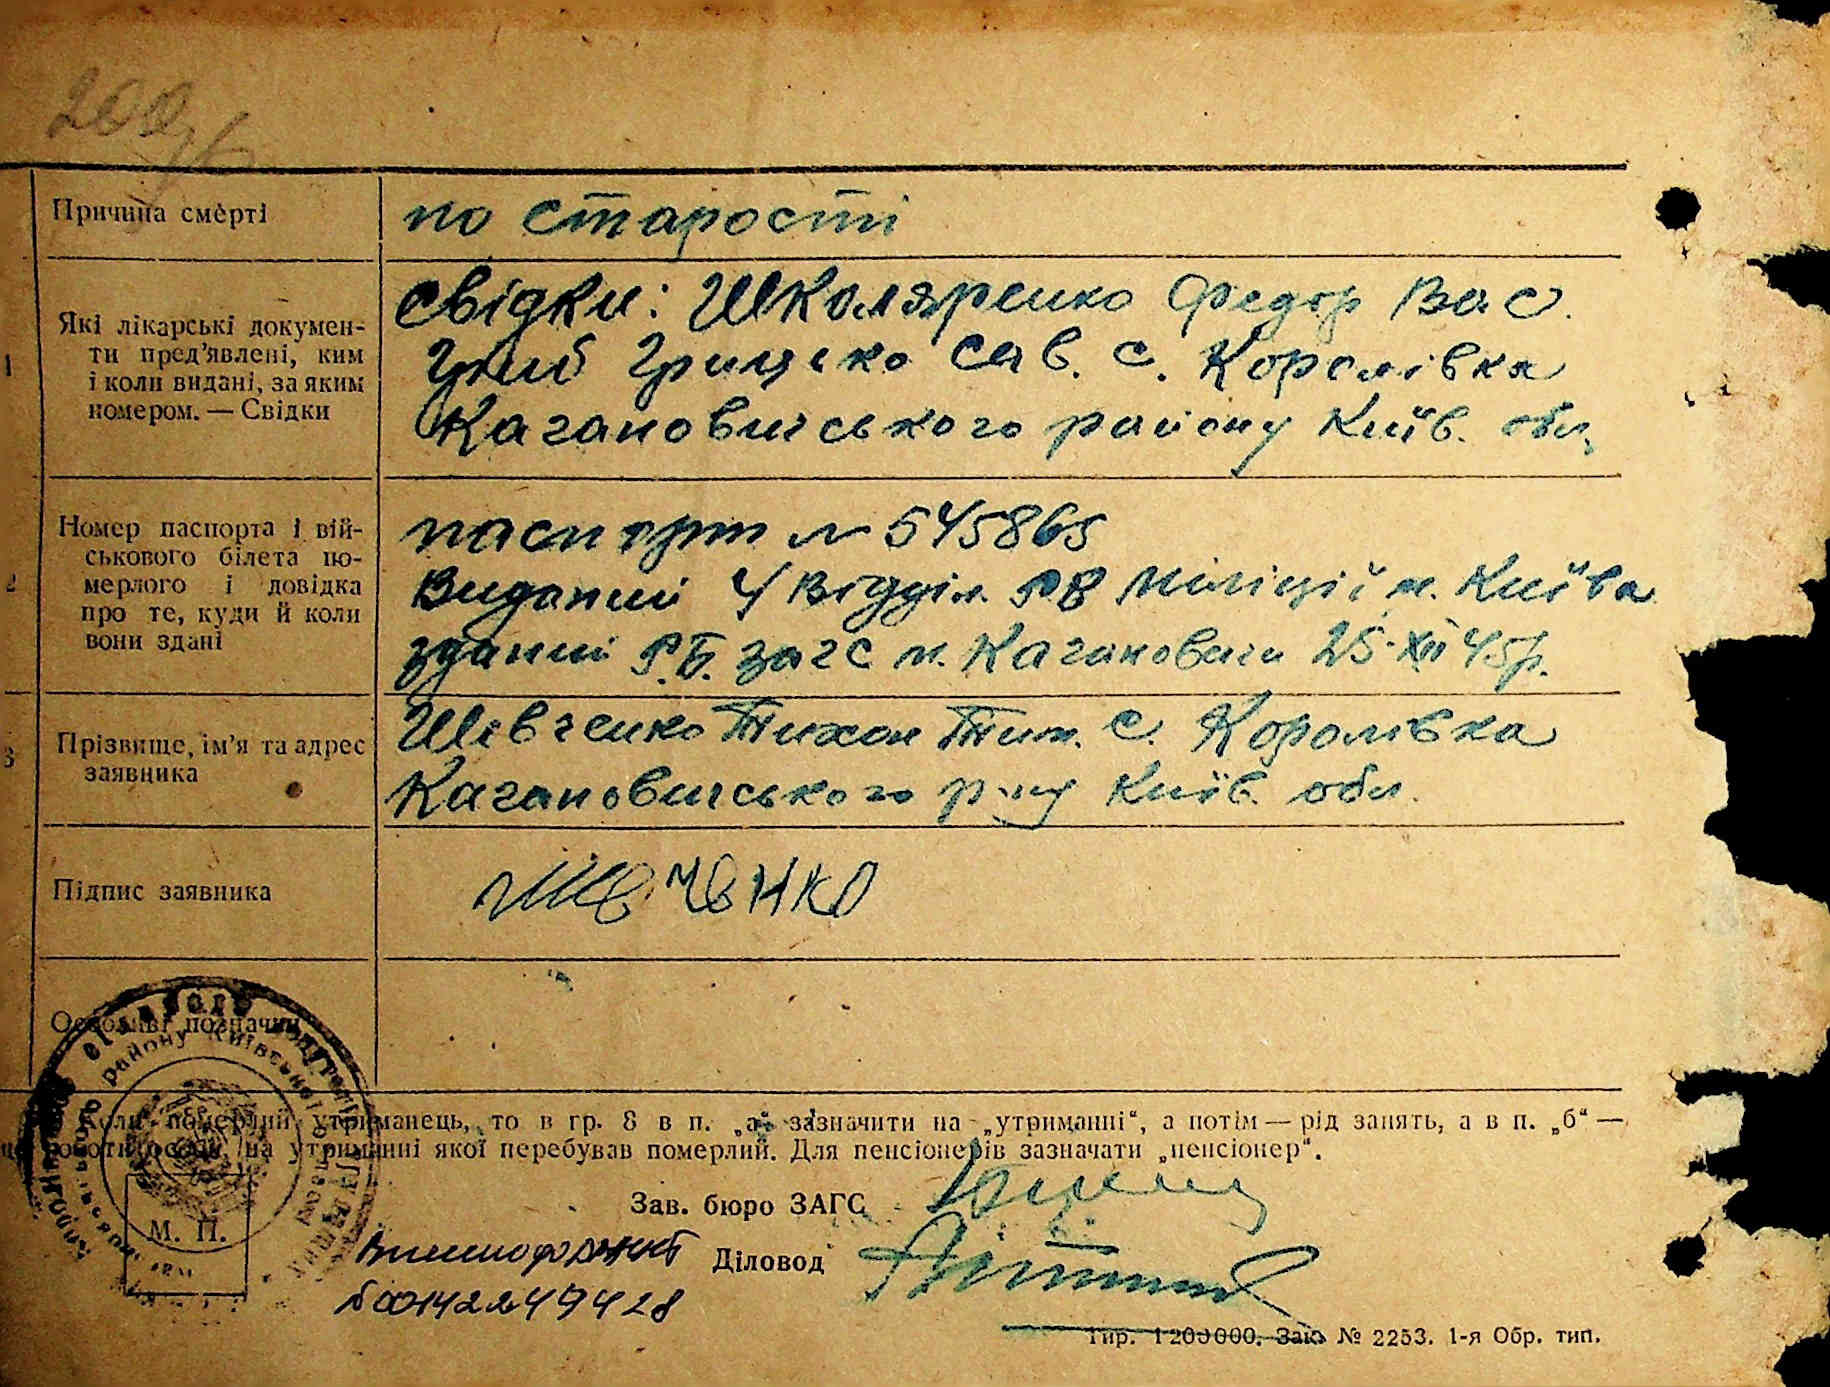 200
Причина смерті
по старості
Які лікарські докумен-
ти пред'явлені, ким
і коли видані, за яким
номером. — Свідки
свідки: Школяренко Федор Вас.
Грищенко Сав. с. Королівка
Кагановичського району Київ. обл.
Номер паспорта і вій-
ськового білета по-
мерлого і довідка
про те, куди й коли
вони здані
паспорт № 545865
Виданий 4 Відділ. РВ Міліції м. Київа
зданий Р.Б. загс м. Кагановичи 25·XII 45р.
Прізвище, ім'я та адрес
заявника
Шевченко Тихон Тим. с. Королівка
Кагановичського р-ну Київ. обл.
Підпис заявника
Особливі позначки
району Київської області
Коли померлий утриманець, то в гр. 8 в п. „а“ зазначити на „утриманні“, а потім — рід занять, а в п. „б“ —
роботи особи, на утриманні якої перебував померлий. Для пенсіонерів зазначати „пенсіонер“.
Зав. бюро ЗАГС
М. П.
Діловод
00142249428
Тир. 1200000. Зак. № 2253. 1-я Обр. тип.